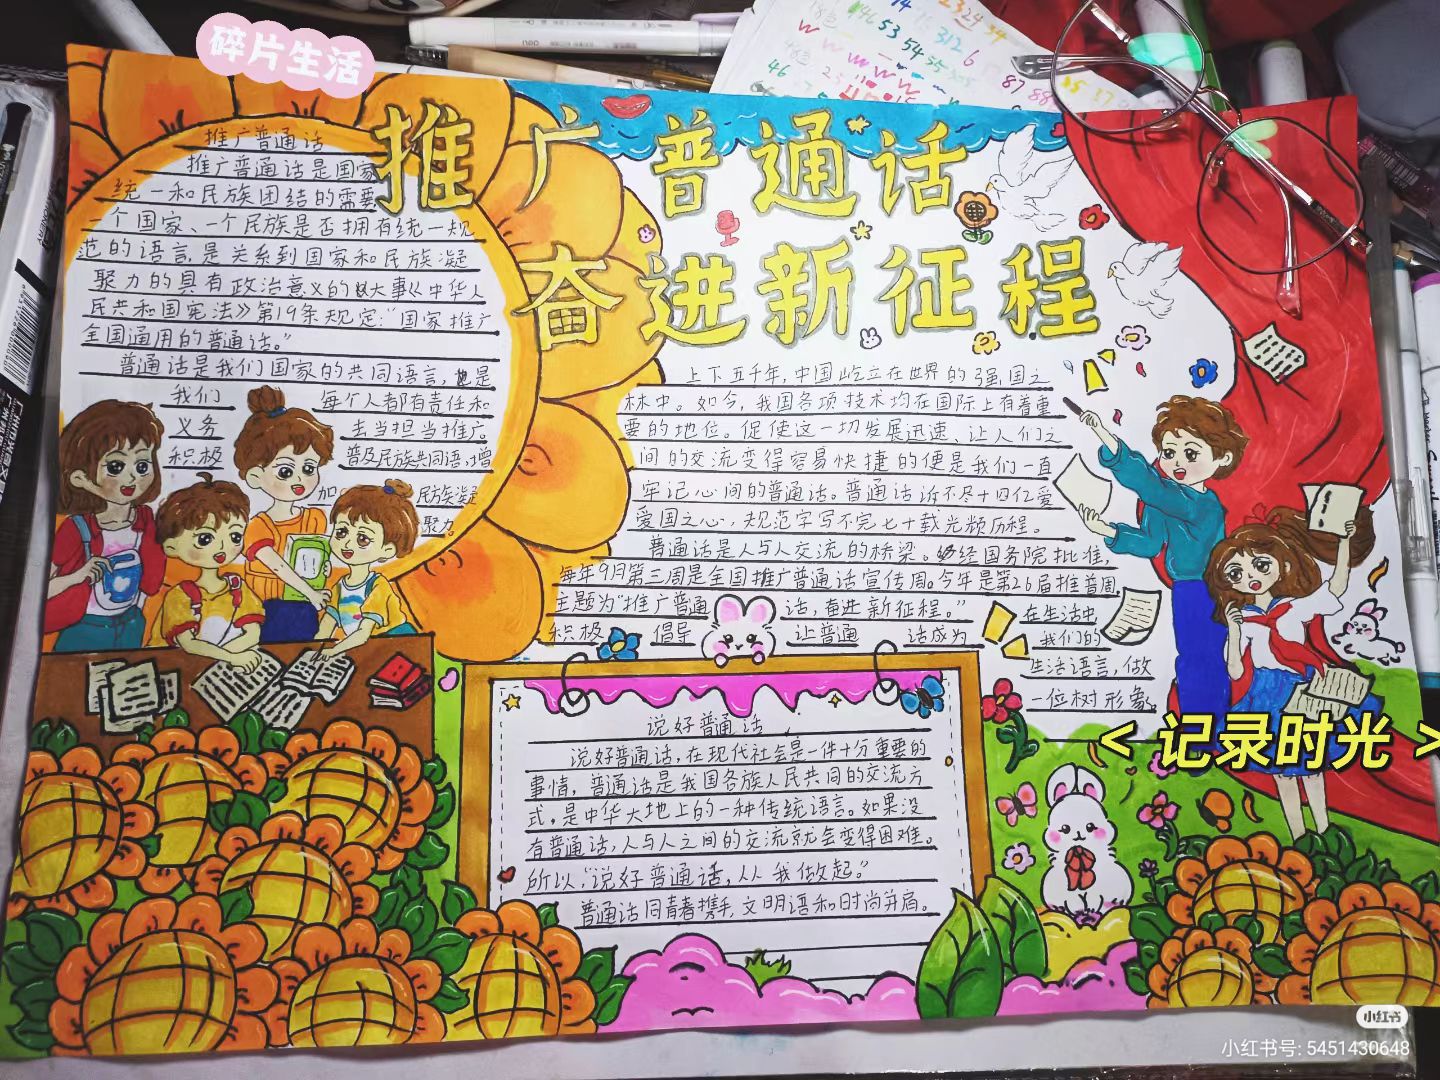 碎片生活
推广普通话
奋进新征程
推广普通话
推广普通话是国家
统一和民族团结的需要
一个国家、一个民族是否拥有统一规
范的语言,是关系到国家和民族凝
聚力的具有政治意义的大事《中华人
民共和国宪法》第19条规定:“国家推广
全国通用的普通话。”
普通话是我们国家的共同语言,也是
我们 每个人都有责任和
义务 去当担当推广
积极 普及民族共同语,增
加 民族凝
聚力。
上下五千年,中国屹立在世界的强国之
林中。如今,我国各项技术均在国际上有着重
要的地位。促使这一切发展迅速、让人们之
间的交流变得容易快捷的便是我们一直
牢记心间的普通话。普通话诉不尽十四亿爱
爱国之心,规范字写不完七十载光频历程。
普通话是人与人交流的桥梁。经国务院批准,
每年9月第三周是全国推广普通话宣传周。今年是第26届推普周,
主题为“推广普通 话,奋进新征程。” 在生活中,
积极 倡导 让普通 话成为 我们的
生活语言,做
一位树形象。
说好普通话
说好普通话,在现代社会是一件十分重要的
事情,普通话是我国各族人民共同的交流方
式,是中华大地上的一种传统语言。如果没
有普通话,人与人之间的交流就会变得困难。
所以,“说好普通话,从我做起。”
普通话同青春携手,文明语和时尚并肩。
< 记录时光 >
小红书
小红书号: 5451430648